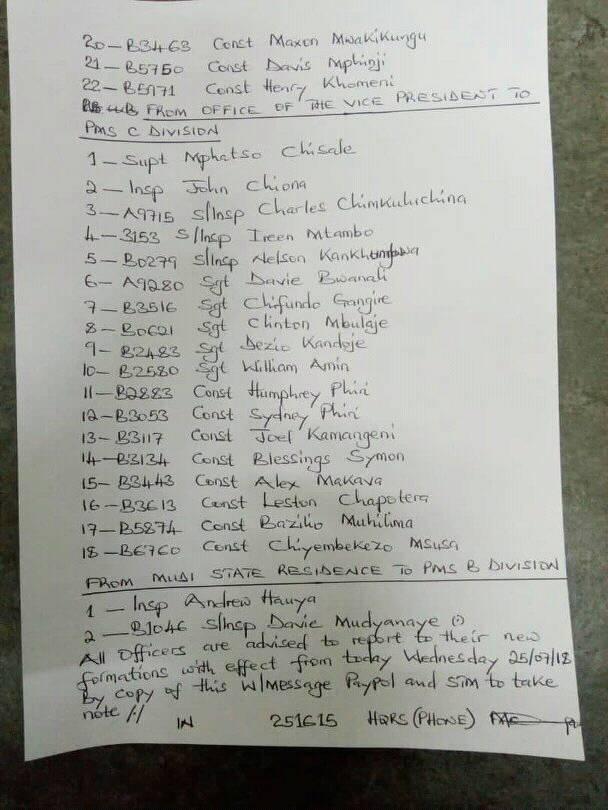 20 - B3463 Const Maxon Mwakikungu
21 - B5750 Const Davis Mphinji
22 - B5971 Const Henry Khomeni
FROM OFFICE OF THE VICE PRESIDENT TO
PMS C DIVISION
1 - Supt Mphatso Chisale
2 - Insp John Chiona
3 - A9715 S/Insp Charles Chimkuluchina
4 - 3153 S/Insp Ireen Mtambo
5 - B0279 S/Insp Nelson
6 - A9280 Sgt Davie Bwanali
7 - B3516 Sgt Chifundo Gangire
8 - B0621 Sgt Clinton Mbulaje
9 - B2483 Sgt Dezio Kandoje
10 - B2580 Sgt William Amin
11 - B2883 Const Humphrey Phiri
12 - B3053 Const Sydney Phiri
13 - B3117 Const Joel Kamangeni
14 - B3134 Const Blessings Symon
15 - B3443 Const Alex Makava
16 - B3613 Const Leston Chapotera
17 - B5874 Const Bazilio Muhilima
18 - B6760 Const Chiyembekezo Msusa
FROM MUDI STATE RESIDENCE TO PMS B DIVISION
1 - Insp Andrew Hauya
2 - B1046 S/Insp Davie Mudyanaye (.)
All Officers are advised to report to their new
formations with effect from today Wednesday 25/07/18
By copy of this W/Message Paypol and SIM to take
note /-/
IN 251615 HQRS (PHONE)